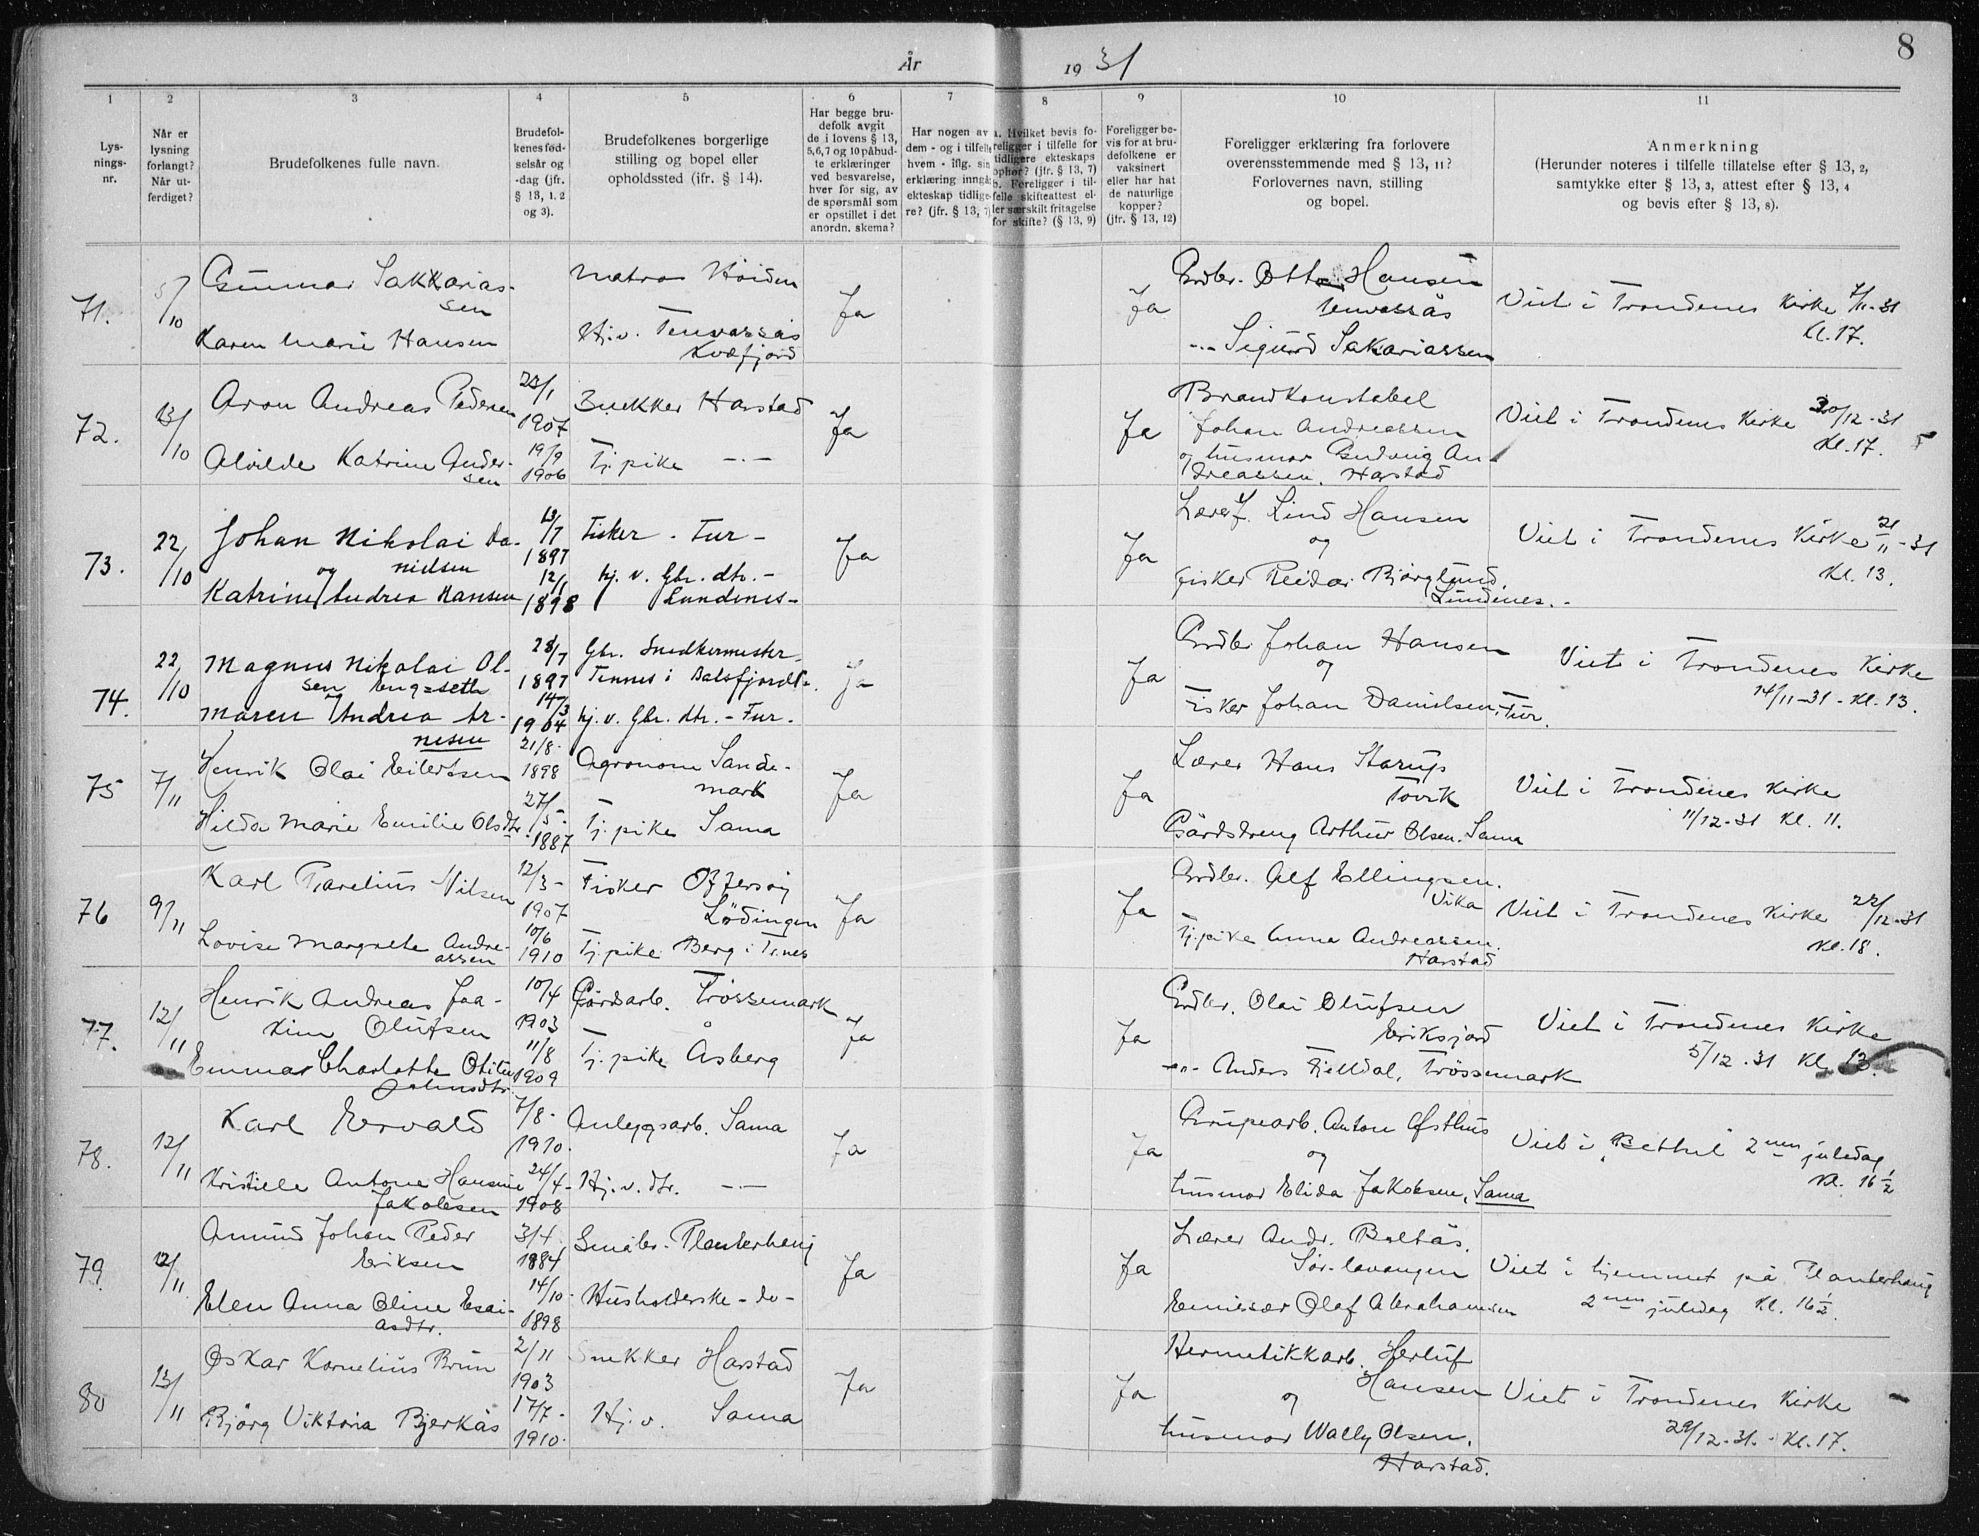 8
År 1931
1
2
3
4
5
6
7
8
9
10
11
Lys-
nings-
nr.
Når er
lysning
forlangt?
Når ut-
ferdiget?
Brudefolkenes fulle navn.
Brudefol-
kenes fød-
selsår og
-dag (jfr.
§ 13, 1, 2
og 3).
Brudefolkenes borgerlige
stilling og bopel eller
opholdssted (ifr. § 14).
Har begge bru-
defolk avgit
de i lovens § 13,
5,6,7 og 10 påbud-
te erklæringer
ved besvarelse,
hver for sig, av
de spørsmål som
er opstillet i det
anordn. skema?
Har nogen av
dem - og i tilfelle
hvem - iflg. sin
erklæring inngå
ekteskap tidlige-
re? (jfr. § 13, 7)
a. Hvilket bevis fo-
religger i tilfelle for
tidligere ekteskaps
ophør? (jfr. § 13, 7)
b. Foreligger i til-
felle skifteattest el-
ler særskilt fritagelse
for skifte? (§ 13, 9)
Foreligger be-
vis for at bru-
defolkene er
vaksinert
eller har hat
de naturlige
kopper?
(jfr. § 13, 12)
Foreligger erklæring fra forlovere
overensstemmende med § 13, 11?
Forlovernes navn, stilling
og bopel.
Anmerkning
(Herunder noteres i tilfelle tillatelse efter § 13, 2,
samtykke efter § 13, 3, attest efter § 13, 4
og bevis efter § 13, 8).
71.
5/10
Gunnar Sakkarias-
sen
Karen Marie Hansen
Matros Höiden
Hj.v. Tenvassås
Kvæfjord
Ja
Ja
Grdbr. Otto Hansen
Tenvassås
-"- Sigurd Sakariassen
Viet i Trondenes Kirke 7/11-31
Kl. 17.
72.
13/10
Aron Andreas Pedersen
Alvilde Katrine Ander-
sen
23/1
1907
19/9
1906
Snekker Harstad
Tj.pike -"-
Ja
Ja
Brandkonstabel
Johan Andreassen
og husmor Gudvig An-
dreassen. Harstad
Viet i Trondenes Kirke 30/12-31
Kl. 17.
73.
22/10
Johan Nikolai Da-
og nielsen
Katrine Andrea Hansen
13/7
1897
12/1
1898
Fisker - Fur -
hj. v. Gbr. dtr. -
Lundenes -
Ja
Ja
Lærer f. Lind Hansen
og
fisker Reidar Bjørglund.
Lundenes.-
Viet i Trondenes Kirke 21/11-31
Kl. 13.
74.
22/10
Magnus Nikolai Ol-
sen Engseth
og
Maren Andrea Ar-
nesen
28/7
1897
14/3
1904
Gbr. Snedkermester
Tennes i Balsfjord
hj. v. Gbr. dtr. - Fur.
ja
Ja
Grdbr Johan Hansen
og
Fisker Johan Danielsen, Fur.
Viet i Trondenes Kirke
14/11-31 - Kl. 13.
75
7/11
Henrik Olai Eilertsen
Hilda Marie Emilie Olsdtr
21/8-
1898
27/5-
1887
Agronom Sande-
mark
Tj.pike Sama
Ja
Ja
Lærer Hans Starup
Tovik
Gårdsdreng Arthur Olsen. Sama
Viet i Trondenes Kirke
11/12-31 Kl. 11.
76
9/11
Karl Parelius Nilsen
Lovise Margrete Andre-
assen
12/3-
1907
10/6
1910
Fisker Offersøy
Lödingen
Tj.pike Berg i Tr.nes
Ja
Ja
Grdbr. Alf Ellingsen.
Vika
Tj.pike Anna Andreassen.
Harstad
Viet i Trondenes Kirke 22/12-31
Kl. 18.
77.
12/11
Henrik Andreas Joa-
kim Olufsen
Emma Charlotte Otilie
Johnsdtr.
10/4
1903
11/8
1909
Gårdsarb. Trössemark
Tj.pike Åsberg
Ja
Ja
Grdbr. Olai Olufsen
Eriksjord
-"- Anders Fjelldal, Trössemark
Viet i Trondenes Kirke
5/12-31 Kl. 13.
78.
12/11
Karl Ervald
Kristielle Antone Hansine
Jakobsen
7/8-
1910.
24/4-
1908
Anleggsarb. Sama
Hj.v. dtr. -"-
Ja
Ja
Grupearb. Anton Østhus
og
husmor Elida Jakobsen, Sama
Viet i "Bethel" 2nen juledag
Kl. 16½
79.
12/11
Amund Johan Peder
Eriksen
Elen Anna Oline Esai-
asdtr.
3/4
1884
14/10-
1898
Småbr. Planterhaug
Husholderske - do -
Ja
Ja
Lærer Andr. Baltås.
Sör-lavangen
Emissær Olaf Abrahamsen
Viet i hjemmet på Planterhaug
2nen juledag Kl. 16½.
80
13/11
Oskar Kornelius Brun
Björg Viktoria Bjerkås
2/11
1903
17/7-
1910.
Snekker Harstad
Hj.v. Sama
Ja
Ja
Hermetikkarb. Herluf
Hansen
og
husmor Wally Olsen.
Harstad.
Viet i Trondenes Kirke
29/12-31. Kl. 17.